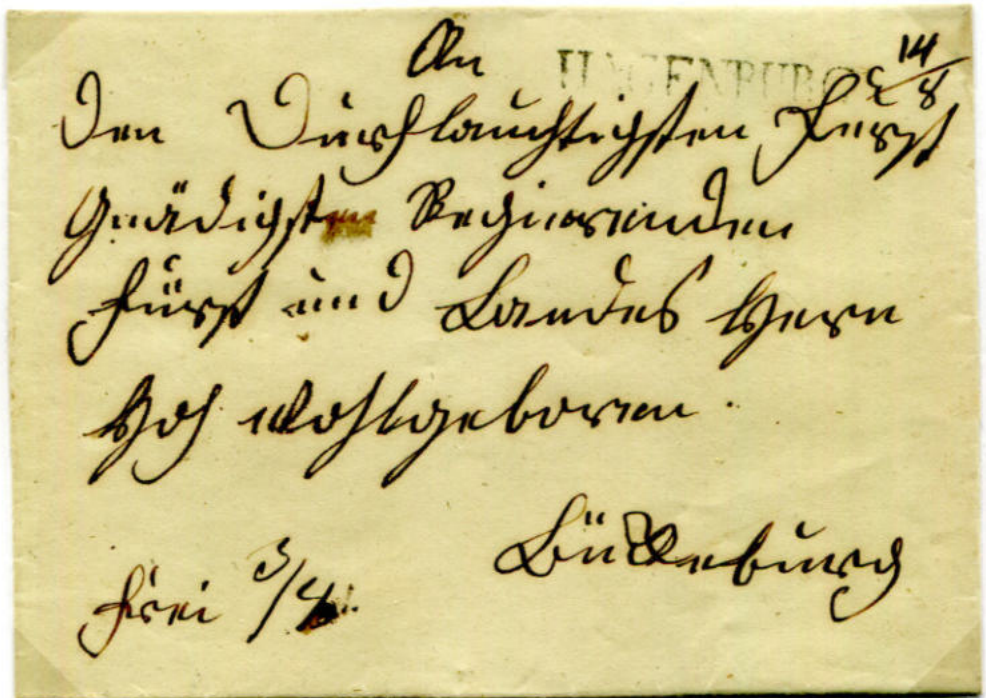 An
HAGENBURG 14/8
Den Durchlauchtigsten Fürst
Gnädigsten Regierenden
Fürst und Landes Hern
Hoch Wohlgeboren.
Bückeburg
frei 3/4